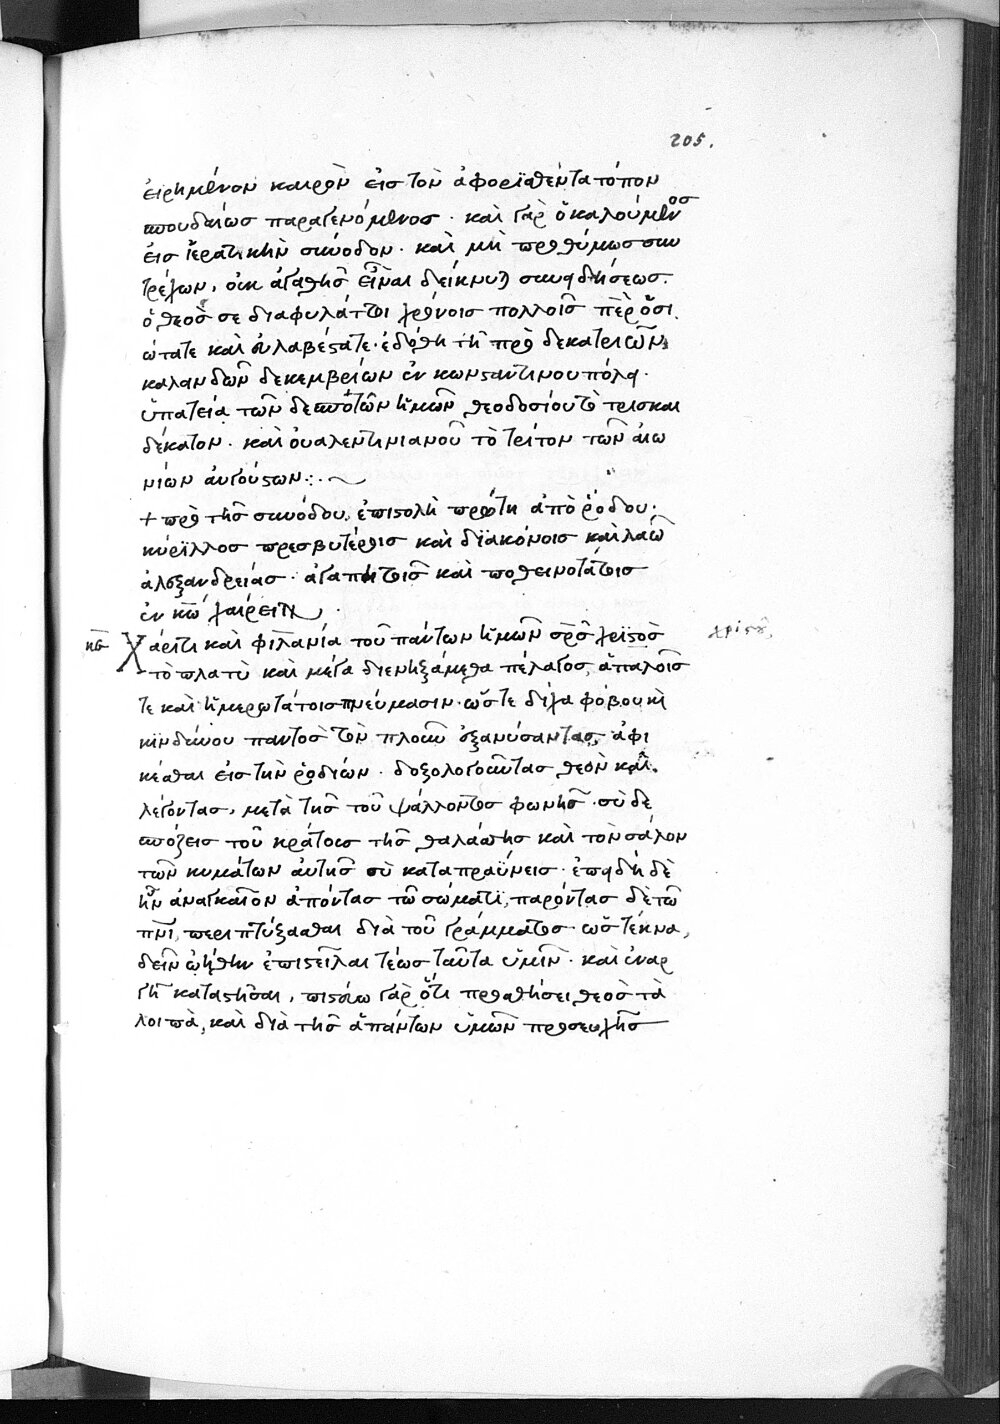 205.
εἰρημένον καιρὸν εἰς τὸν ἀφορισθέντα τόπον
σπουδαίως παραγενόμενος. καὶ γὰρ ὁ καλούμενος
εἰς ἱερατικὴν σύνοδον. καὶ μὴ προθύμως συν
τρέχων, οὐκ ἀγαθῆς εἶναι δείκνυται συνειδήσεως.
ὁ θεὸς σε διαφυλάττοι χρόνοις πολλοῖς πάτερ ὁσι
ώτατε καὶ εὐλαβέστατε. ἐδόθη τῇ πρὸ δεκατριῶν
καλανδῶν δεκεμβρίων ἐν κωνσταντινουπόλει.
ὑπατεία τῶν δεσποτῶν ἡμῶν θεοδοσίου τὸ τρισκαι
δέκατον. καὶ οὐαλεντινιανοῦ τὸ τρίτον τῶν αἰω
νίων αὐγούστων:.
+ πρὸ τῆς συνόδου. ἐπιστολὴ πρώτη ἀπὸ ῥόδου.
κύριλλος πρεσβυτέροις καὶ διακόνοις καὶ λαῶ
ἀλεξανδρείας. ἀγαπητοῖς καὶ ποθεινοτάτοις
ἐν κω χαίρειν.
Χάριτι καὶ φιλανία τοῦ πάντων ἡμῶν σρς χριστὸς
χριστοῦ,
τὸ πλατὺ καὶ μέγα διενηξάμεθα πέλαγος, ἁπαλοῖς
τε καὶ ἡμερωτάτοις πνεύμασιν. ὥστε δίχα φόβου καὶ
κινδύνου παντὸς τὸν πλοῦν ἐξανύσαντας, ἀφι
κέσθαι εἰς τὴν ῥοδίων. δοξολογοῦντας θεὸν καὶ.
λέγοντας, μετὰ τῆς τοῦ ψάλλοντος φωνῆς. σὺ δε
σπόζεις τοῦ κράτους τῆς θαλάσσης καὶ τὸν σάλον
τῶν κυμάτων αὐτῆς σὺ καταπραΰνεις. ἐπειδὴ δὲ
ἦν ἀναγκαῖον ἀπόντας τῶ σώματι, παρόντας δὲ τῶ
πνι, περιπτύξασθαι διὰ τοῦ γράμματος ὡς τέκνα,
δεῖν ὠήθην ἐπιστεῖλαι τέως ταῦτα ὑμῖν. καὶ ἐναρ
γῆ καταστῆσαι, πιστεύω γὰρ ὅτι προσθήσει θεὸς τὰ
λοιπὰ, καὶ διὰ τῆς ἁπάντων ὑμῶν προσευχῆς